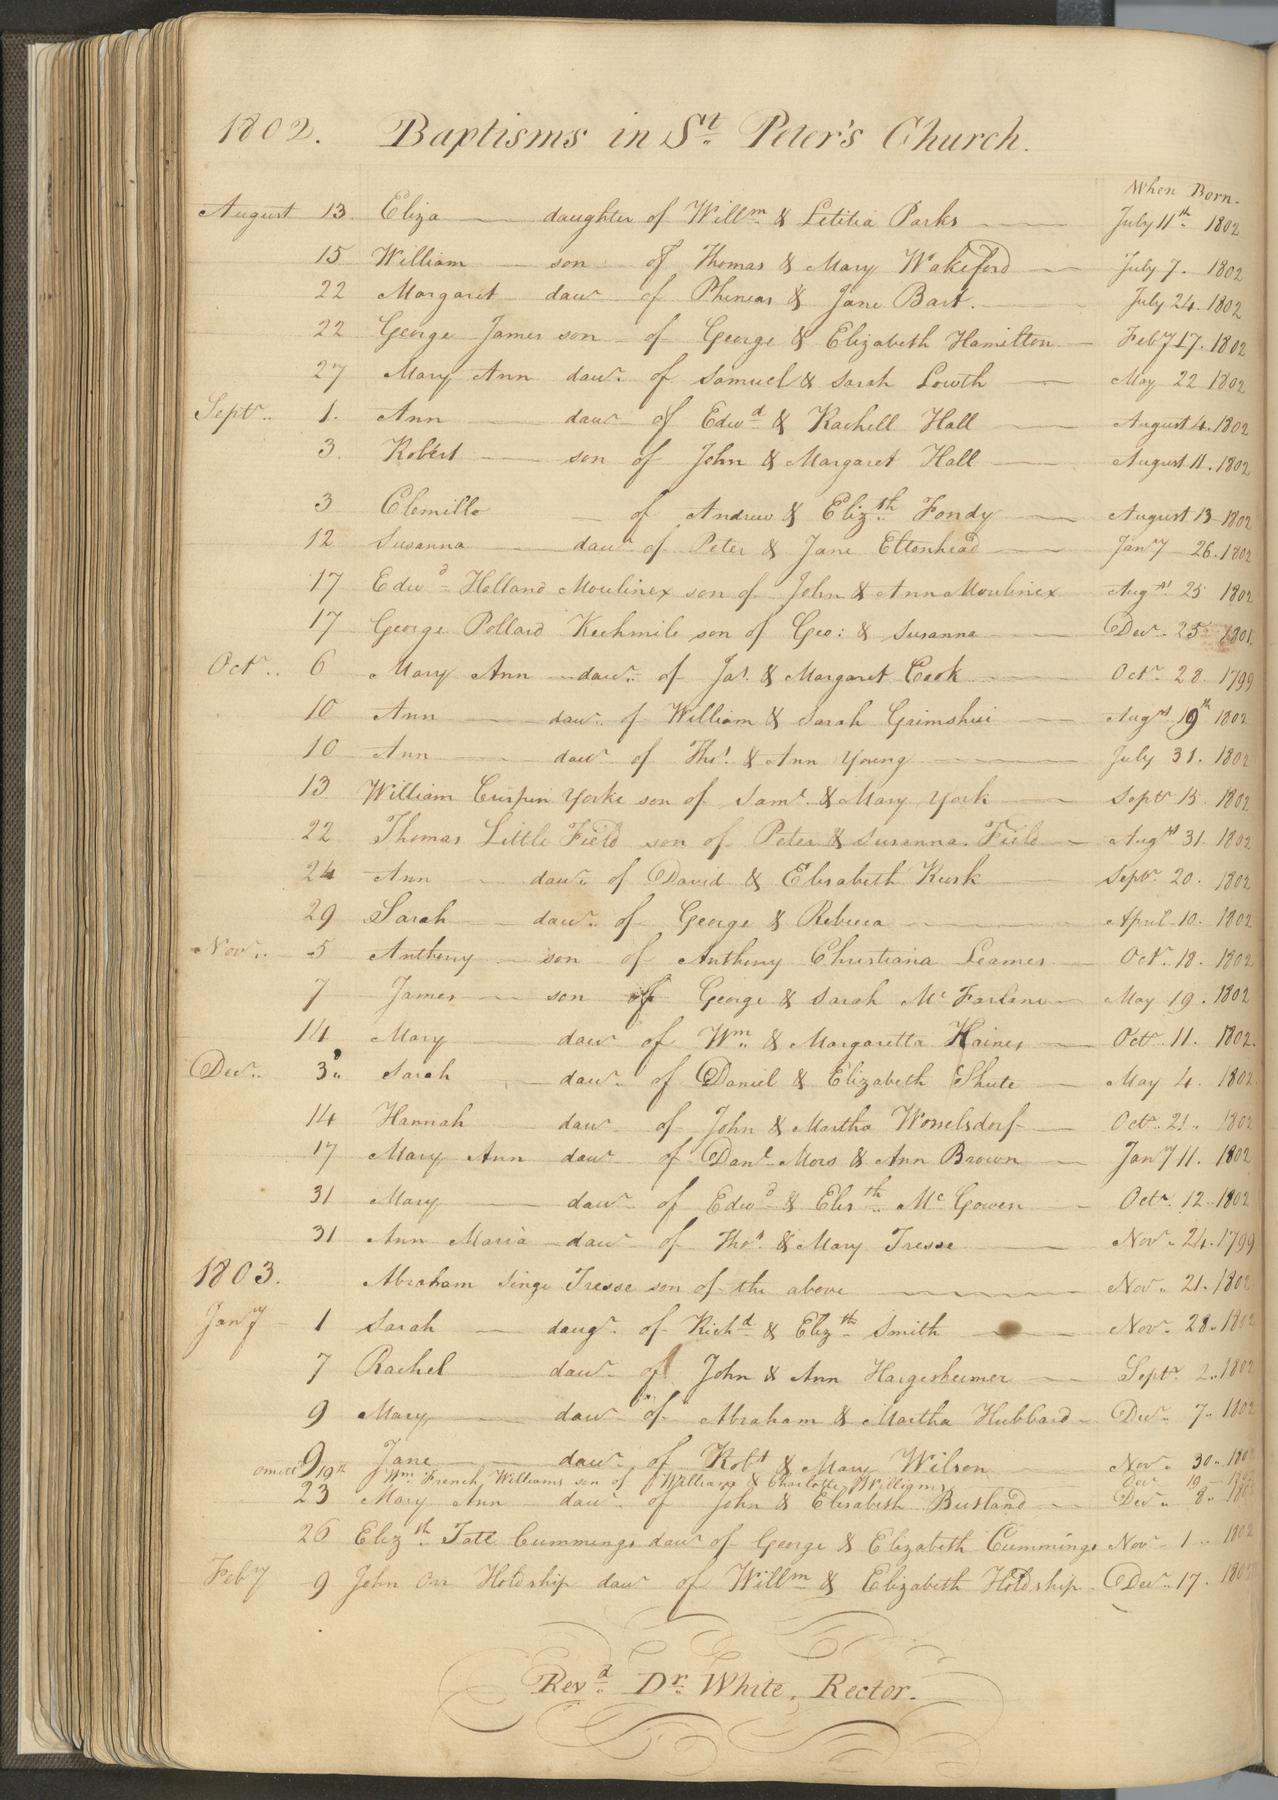 1802. Baptisms in St. Peter's Church.
When Born.
August 13. Eliza daughter of Willm. & Letitia Parks July 11th. 1802
15 William son of Thomas & Mary Wakeford July 7. 1802
22 Margaret daur. of Phineas & Jane Bart. July 24. 1802
22 George James son of George & Elizabeth Hamilton Feby 17. 1802
27 Mary Ann daur. of Samuel & Sarah Lowth May 22 1802
Septr. 1. Ann daur of Edwd. & Rachell Hall August 4. 1802
3. Robert son of John & Margaret Hall August 11. 1802
3 of Andrew & Elizth. Fondy August 13 1802
12 Susanna daur of Peter & Jane Eltonhead Jany 26. 1802
17 Edwd. Holland Moulinex son of John & Ann Moulinex Augst 25 1802
17 George Pollard son of Geo: & Susanna Decr. 25 1801.
Octr. 6 Mary Ann daur. of Jas. & Margaret Cook Octr. 28. 1799
10 Ann daur. of William & Sarah Augst 19th 1802
10 Ann daur of Thos. & Ann Young July 31. 1802
13 William Yorke son of Saml. & Mary York Septr 15. 1802
22 Thomas Little Field son of Peter & Susanna Field Augst 31. 1802
24 Ann daur. of David & Elisabeth Septr. 20. 1802
29 Sarah daur. of George & Rebecca April 10. 1802
Novr. 5 Anthony son of Anthony Christiana Leamer Octr. 18. 1802
7 James son of George & Sarah Mc Farlane May 19. 1802
14 Mary daur of Wm. & Margaretta Haines Octr. 11. 1802.
Decr. 3. Sarah daur. of Daniel & Elizabeth Shute May 4. 1802
14 Hannah daur. of John & Martha Worrelsdorf Octr. 21. 1802
17 Mary Ann daur of Danl. & Ann Brown Jany 11. 1802
31 Mary daur. of Edwd. & Elisth. Mc Gowen Octr. 12. 1802
31 Ann Maria daur. of Thos. & Mary Tresse Novr. 24. 1799
1803. Abraham Singe Tresse son of the above Novr. 21. 1802
Jany 1 Sarah daugr. of Richd. & Elizth. Smith Novr. 28. 1802
7 Rachel daur. of John & Ann Hargesheimer Septr. 2. 1802
9 Mary daur of Abraham & Martha Hubbard Decr. 7. 1802
9 Jane daur. of Robt & Mary Wilson Novr. 30. 1802
omitd. 19th Wm. French Williams son of William & Charlotte Williams Decr 19
23 Mary Ann daur. of John & Elisabeth Busland Decr. 8. 1802
26 Elizth. Tate Cummings daur of George & Elizabeth Cummings Novr. 1. 1802
Feby 9 John Orr Holdship daur of Willm. & Elizabeth Holdship Decr. 17. 1802
Revd. Dr. White, Rector.